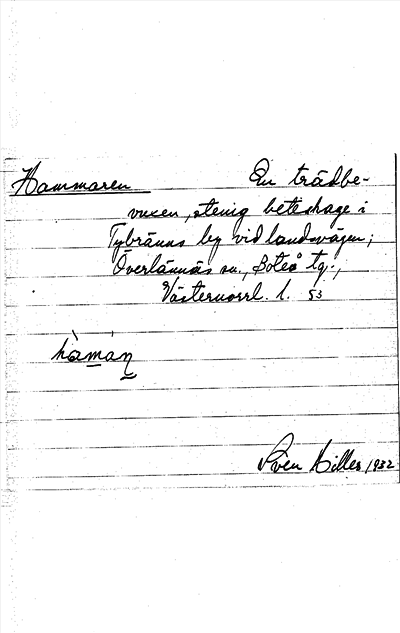 Hammaren En trädbe-
vuxen, stenig beteshage i
Tybränns by vid landsvägen;
Överlännäs sn., Boteå tg.,
Västernorrl. l. 53
hàmán
Sven Hilles 1932